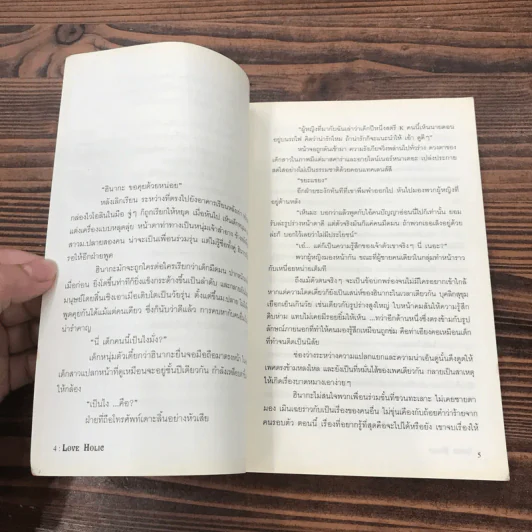 "ฮินากะ ขอคุยด้วยหน่อย"
หลังเลิกเรียน ระหว่างที่ตรงไปยังอาคารเรียนพลาง
กล่องไวโอลินในมือ จู่ๆ ก็ถูกเรียกให้หยุด เมื่อหันไป
แต่งเครื่องแบบหลุดลุ่ย หน้าตาท่าทางเป็นหนุ่มเจ้าสำอาง
สาวตามหลายสองคน น่าจะเป็นเพื่อนร่วมรุ่น แต่ไม่รู้ชื่อ
รอให้อีกฝ่ายพูด
ฮินากะมักจะถูกใครต่อใครเรียกว่าเด็กมีดมน
เมื่อก่อน ยิ่งโตขึ้นท่าทีก็ยิ่งแข็งกระด้างขึ้นเป็นลำดับ และ
มนุษย์โดยสิ้นเชิงเอาเมื่อเติบโตเป็นวัยรุ่น
พูดคุยกันได้แม้แต่คนเดียว ซึ่งก็นับว่าดีแล้ว การคบหากับคน
น่ารำคาญ
"นี่ เด็กคนนี้เป็นไงมั่ง?"
เด็กหนุ่มตัวเตี้ยกว่าฮินากะยื่นจอมือถือมาตรงหน้า
เด็กสาวแปลกหน้าที่ดูเหมือนจะอยู่ชั้นปีเดียวกัน กำลัง
ให้กล้อง
"เป็นไง ...คือ?"
ฝ่ายที่ถือโทรศัพท์เดาะลิ้นอย่างหัวเสีย
4 : LOVE HOLIC
"ผู้หญิงที่มากับฉันเล่าว่าเด็กปีหนึ่งสตรี K คนนี้เห็นนายตอน
อยู่บนรถไฟ คิดว่าน่ารักไหม ถ้าน่ารักก็จะแนะนำให้ เอ้า ดูดีๆ"
หน้าจอถูกหันเข้ามา ความรังเกียจจึงพล่านไปทั่วร่าง ดวงตาของ
เด็กสาวในภาพมีแต่มาสคาร่าและอายไลน์เนอร์หนาเตอะ เปล่งประกาย
สดใสอย่างไม่เป็นธรรมชาติด้วยคอนแทคเลนส์สี
"ขยะแขยง"
อีกฝ่ายชะงักทันทีที่เขาพึมพำออกไป หันไปมองพวกผู้หญิงที่
อยู่ด้านหลัง
"เห็นมะ บอกว่าแล้วพูดกับไอ้คนปัญญาอ่อนนี่ไปก็เท่านั้น ยอม
รับล่ะรูปร่างหน้าตาดี แต่ก็เป็นแค่คนมืดมน ถ้าพวกเธอเล็งอยู่ด้วย
ล่ะก็ บอกไว้เลยว่าไม่มีประโยชน์"
"เอ๋... แต่ก็เป็นความรู้สึกของเจ้าตัวเขาจริงๆ นี่ เนอะ?"
พวกผู้หญิงมองหน้ากัน ขณะที่ผู้ชายคนเดียวในกลุ่มทำหน้าราว
กับเหนื่อยหน่ายเต็มที
ถึงแม้ตัวตนจริงๆ จะเป็นข้อบกพร่องจนไม่มีใครอยากเข้าใกล้
หากแต่ความโดดเดี่ยวก็ยังเป็นเสน่ห์ของฮินากะในเวลาเดียวกัน บุคลิกสุขุม
เยือกเย็นเกินวัย เช่นเดียวกับรูปร่างสูงใหญ่ ใบหน้าคมสันให้ความรู้สึก
ดิบห่าม แทบไม่เคยมีรอยยิ้มให้เห็น ...ทว่าอีกด้านหนึ่งซึ่งตรงข้ามกับรูป
ลักษณ์ภายนอกที่ทำให้คนมองรู้สึกเหมือนถูกข่ม คือท่าเอียงคอเหมือนเด็ก
ที่ทำจนติดเป็นนิสัย
ช่องว่างระหว่างความแปลกแยกและความน่าเอ็นดูนั้นดึงดูดให้
เพศตรงข้ามหลงใหล และยังเป็นที่หมั่นไส้ของเพศเดียวกัน กลายเป็นสาเหตุ
ให้เกิดเรื่องบาดหมางเอาง่ายๆ
ฮินากะไม่สนใจพวกเพื่อนร่วมชั้นที่ชวนทะเลาะ ไม่เคยชายตา
มอง เมินเฉยราวกับเป็นเรื่องของคนอื่น ไม่ขุ่นเคืองกับถ้อยคำว่าร้ายจาก
คนรอบตัว ตอนนี้ เรื่องที่อยากรู้ที่สุดคือจะไปได้หรือยัง เขาจบเรื่องให้
5